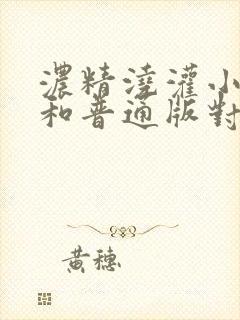 濃精澆灌小
和普通版對
黃穗